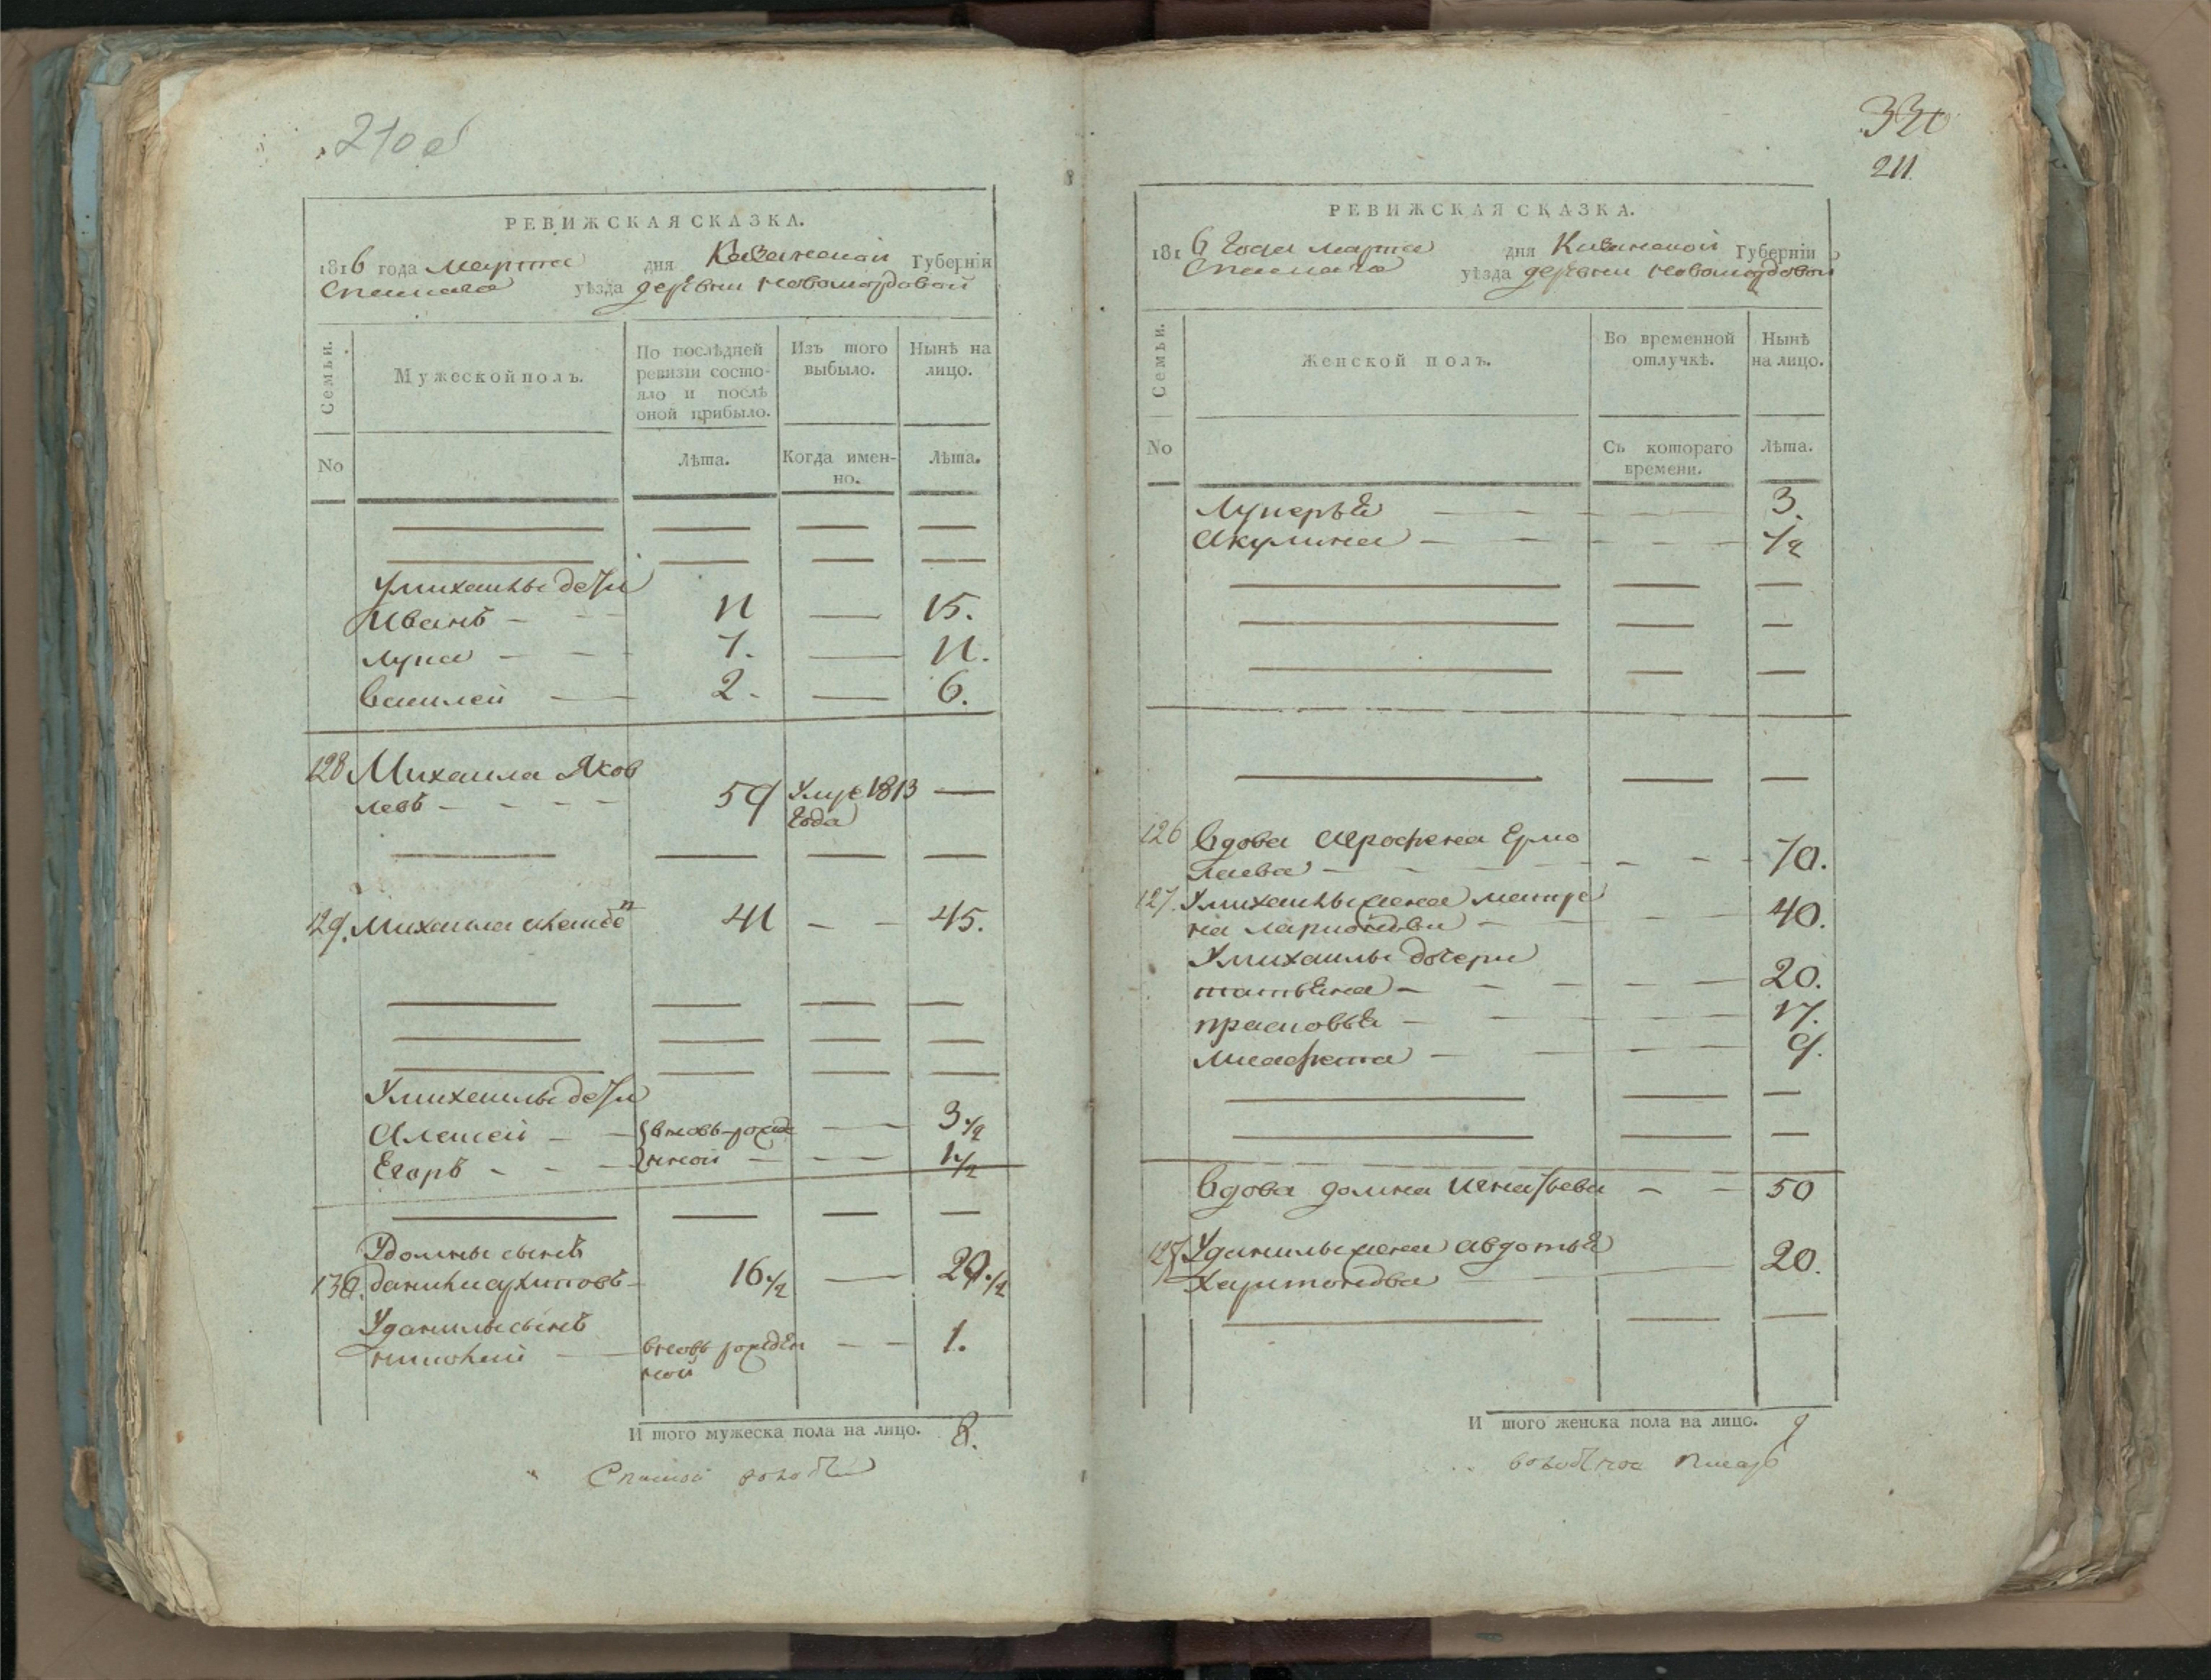 210 об
РЕВИЖСКАЯ СКАЗКА.
1816 года марта дня Казанской Губерніи
Спаскаго уѣзда деревни Новомордовой
Семьи.
Мужеской полъ.
По послѣдней ревизіи состо-
яло и послѣ
оной прибыло.
Изъ того
выбыло.
Нынѣ на
лицо.
No
Лѣта.
Когда имен-
но.
Лѣта.
У михаилы дети
Иванъ 11 15.
Лука 7. 11.
Василей 2. 6.
128 Михаила Яков
левъ 59 Умре 1813 года
129. Михаила 41 45.
У михаилы дети
Алексей вновь рожде 3 1/2
Егоръ нной 1 1/2
У домны сынъ
130. данила архиповъ 16 1/2 20 1/2
У данилы сынъ
николай вновь рожден 1.
ной
И того мужеска пола на лицо. 8.
330
211
РЕВИЖСКАЯ СКАЗКА.
1816 года марта дня Казанской Губерніи
Спаскаго уѣзда деревни Новомордовой
Семьи.
Женской полъ.
Во временной
отлучкѣ.
Нынѣ
на лицо.
No
Съ котораго
времени.
Лѣта.
Лукерья 3.
Акулина 1/2
126 Вдова Аграфена Ермо
лаева 70.
127. У михаилы жена матре
на ларионова 40.
У михаилы дочери
татьяна 20.
прасковья 17.
9.
Вдова домна игнатьева 50
У данилы жена авдотья
Харитонова 20.
И того женска пола на лицо. 9